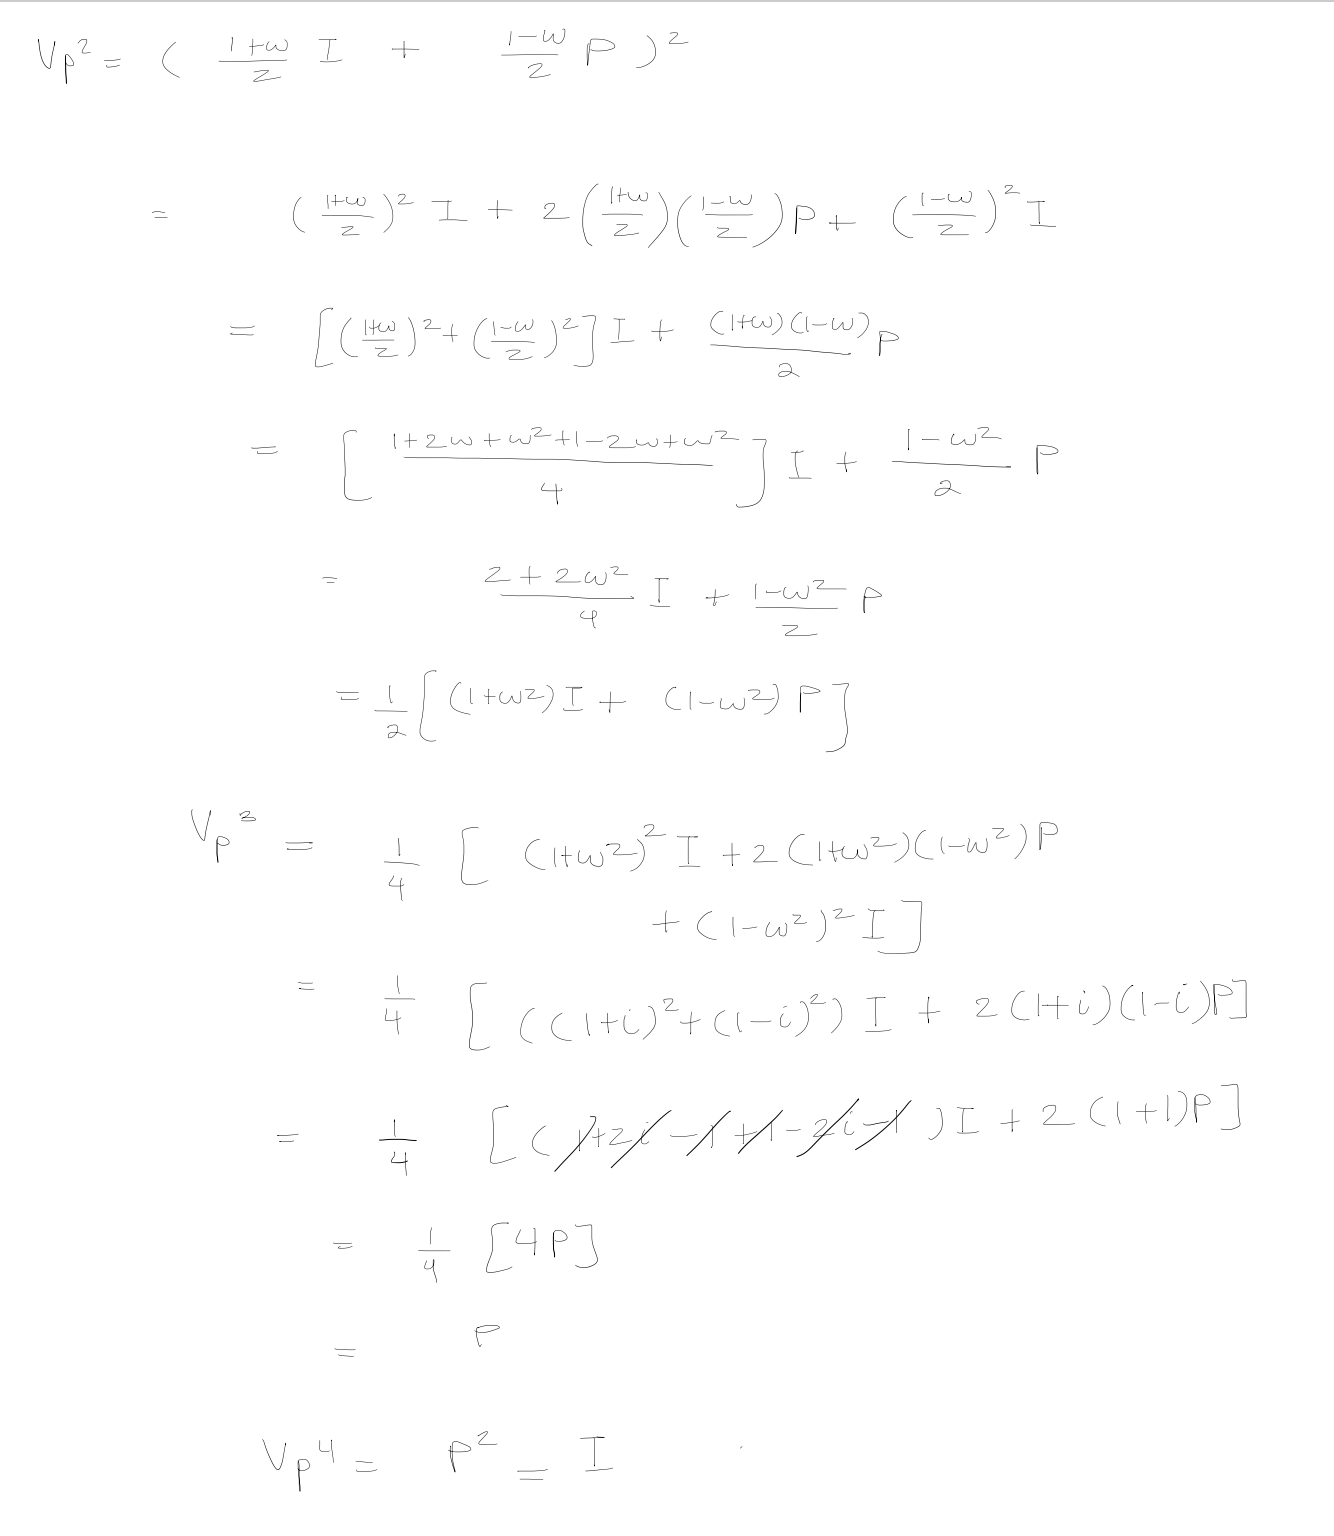 Vp² = ( (1+ω)/2 I + (1-ω)/2 P )²
= ((1+ω)/2)² I + 2((1+ω)/2)((1-ω)/2)P + ((1-ω)/2)² I
= [((1+ω)/2)² + ((1-ω)/2)²] I + (1+ω)(1-ω)/2 P
= [ (1+2ω+ω²+1-2ω+ω²)/4 ] I + (1-ω²)/2 P
= (2+2ω²)/4 I + (1-ω²)/2 P
= 1/2 [(1+ω²)I + (1-ω²)P]
Vp³ = 1/4 [ (1+ω²)² I + 2(1+ω²)(1-ω²)P
+ (1-ω²)² I ]
= 1/4 [ ((1+i)²+(1-i)²) I + 2(1+i)(1-i)P]
= 1/4 [ (1+2i-1+1-2i-1) I + 2(1+1)P]
= 1/4 [4P]
= P
Vp⁴ = P² = I